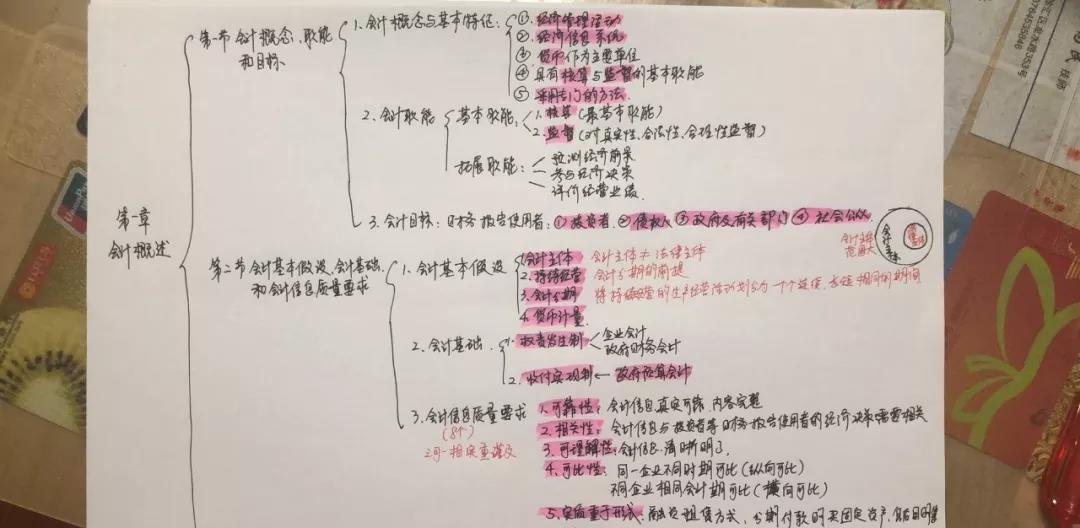 第一章
会计概述
第一节 会计概念、职能
和目标
1. 会计概念与基本特征:
①. 经济管理活动
②. 经济信息系统
③ 货币作为主要单位
④ 具有核算与监督的基本职能
⑤ 采用专门的方法.
2. 会计职能
基本职能:
1. 核算(最基本职能)
2. 监督(对真实性、合法性、合理性监督)
拓展职能:
预测经济前景
参与经济决策
评价经营业绩.
3. 会计目标: 财务报告使用者: ①投资者. ②债权人 ③政府及有关部门 ④ 社会公众.
会计主体
范围大
会计主体
法律主体
第二节 会计基本假设、会计基础、
和会计信息质量要求
1. 会计基本假设
会计主体 会计主体≠法律主体
2. 持续经营 会计分期的前提
3. 会计分期 将持续经营的生产经营活动划分为一个连续、长短相同的期间
4. 货币计量.
2. 会计基础.
1. 权责发生制
企业会计
政府财务会计
2. 收付实现制 ← 政府预算会计
3. 会计信息质量要求
(8个)
三可一相实重谨及
1. 可靠性: 会计信息真实可靠、内容完整
2. 相关性: 会计信息与投资者等财务报告使用者的经济决策需要相关
3. 可理解性: 会计信息清晰明了.
4. 可比性: 同一企业不同时期可比(纵向可比)
不同企业相同会计期可比(横向可比)
5. 实质重于形式: 融资租赁方式、分期付款购买固定资产,
353号
3764535846